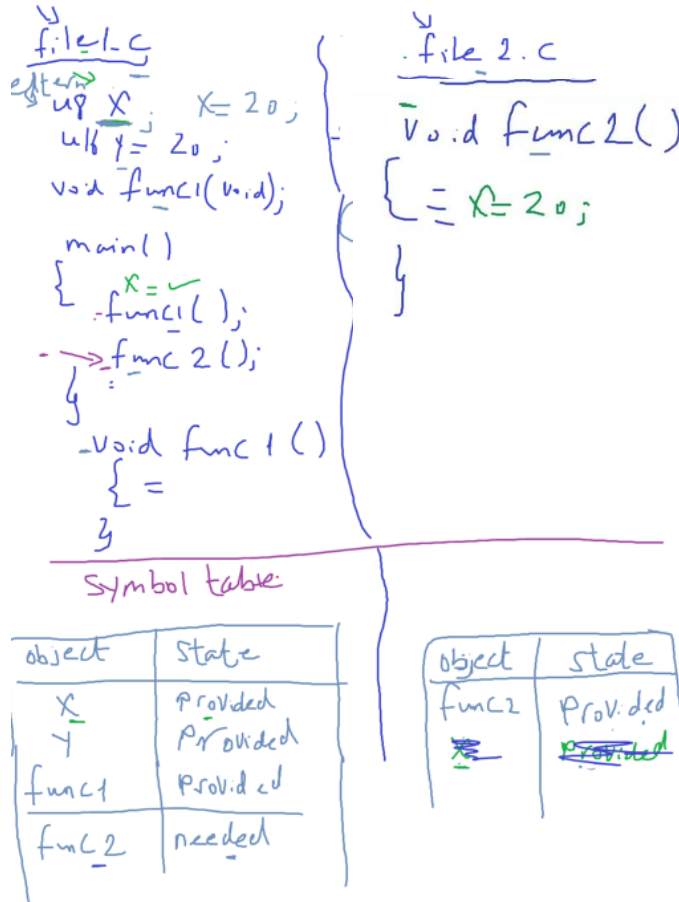 file1.c
extern
u8 X; X=20;
u8 Y=20;
void func1(void);
main()
{
X=
func1();
func2();
}
void func1()
{ =
}
file2.c
void func2()
{ = X=20;
}
symbol table
object state
X Provided
Y Provided
func1 Provided
func2 needed
object state
func2 Provided
X Provided